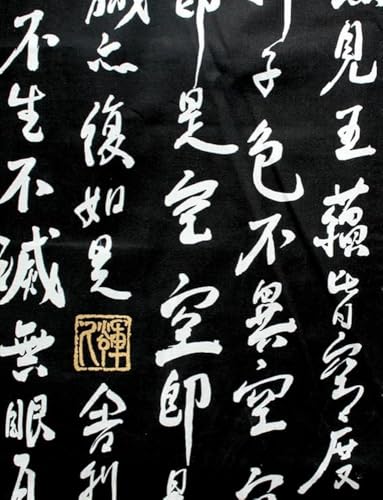 見五蘊皆空度
子色不異空空
即是空空即是
識亦復如是 舍利
不生不滅無眼耳